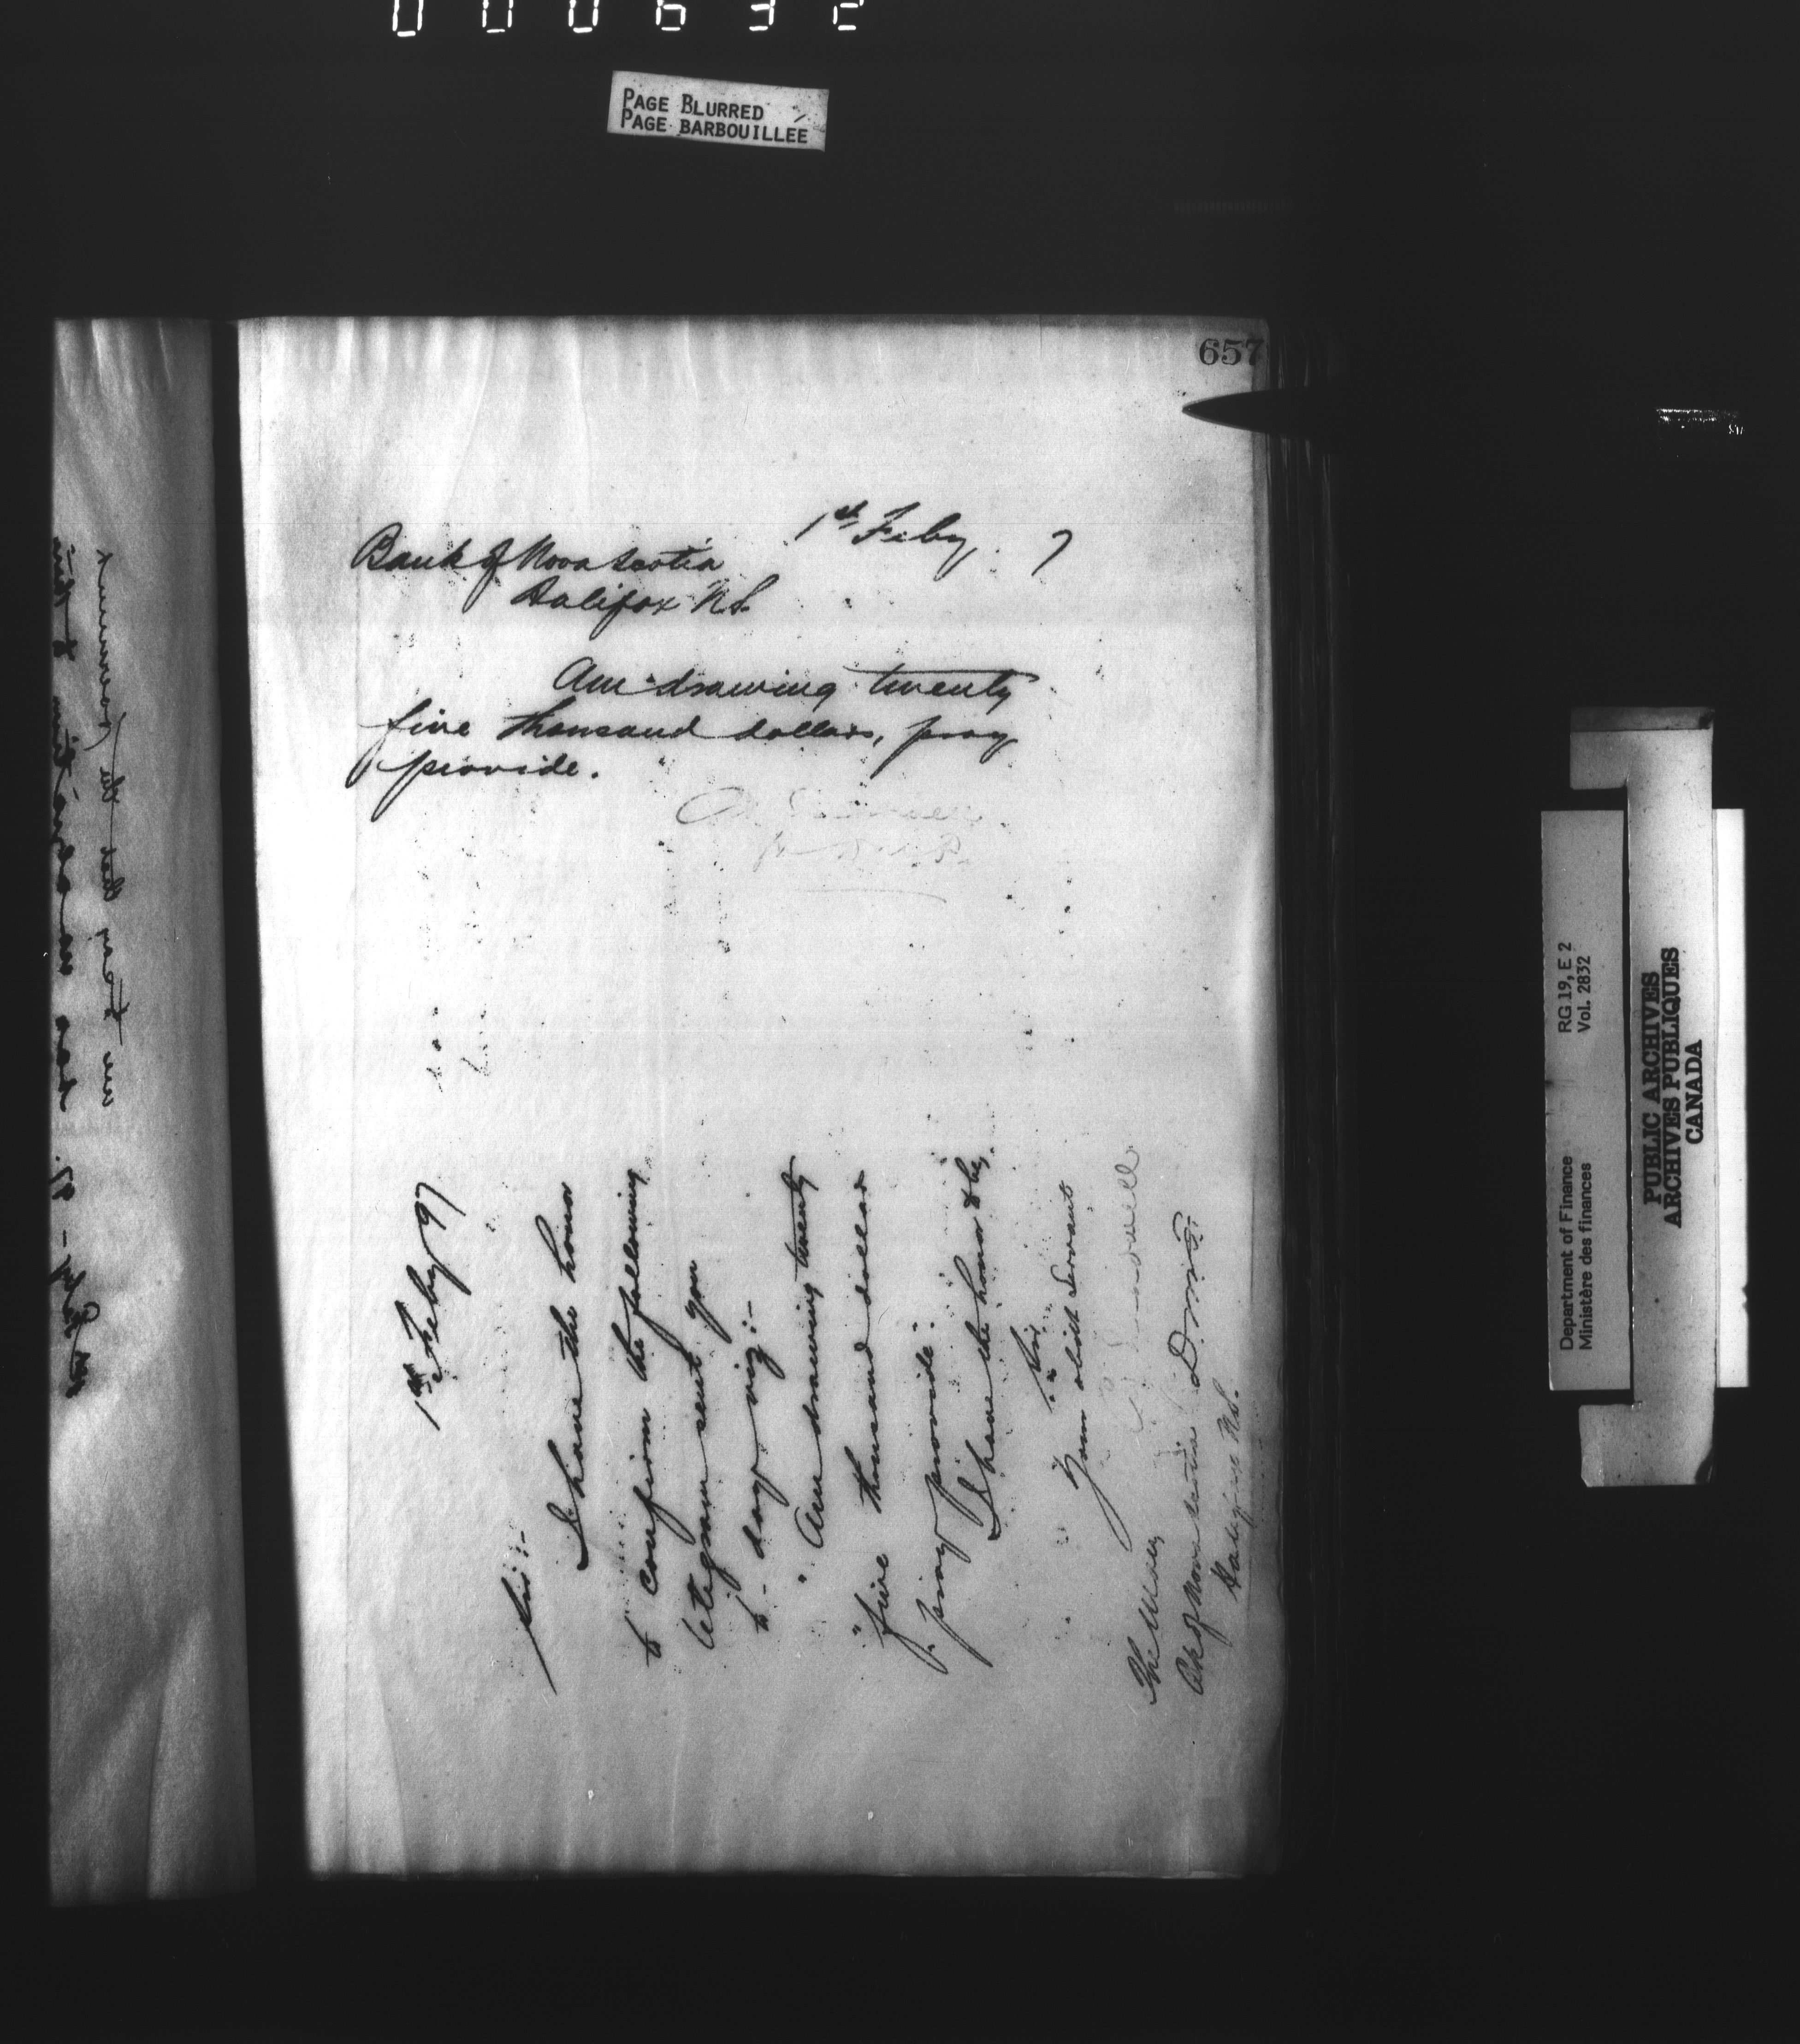 000632
PAGE BLURRED
PAGE BARBOUILLEE
657
1st Feby. 7
Bank of Nova Scotia
Halifax N.S.
Am drawing twenty
five thousand dollars, pray
provide.
1st Feby 97
Sir:-
I have the honor
to confirm the following
telegram sent you
to-day viz:-
"Am drawing twenty
"five thousand dollars
"pray provide."
I have the honor to be,
Sir,
Your obedt Servant
D.M.F.
The Manager
Bk of Nova Scotia
Halifax N.S.
Department of Finance
Ministère des finances
RG 19, E 2
Vol. 2832
PUBLIC ARCHIVES
ARCHIVES PUBLIQUES
CANADA